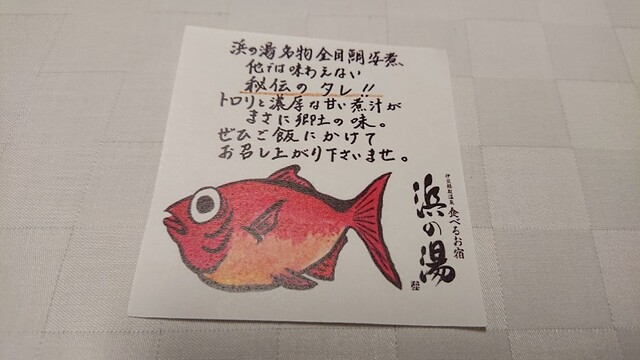 浜の湯名物金目鯛姿煮、
他では味わえない
秘伝のタレ!!
トロリと濃厚な甘い煮汁が
まさに郷土の味。
ぜひご飯にかけて
お召し上がり下さいませ。
伊豆稲取温泉
食べるお宿
浜の湯